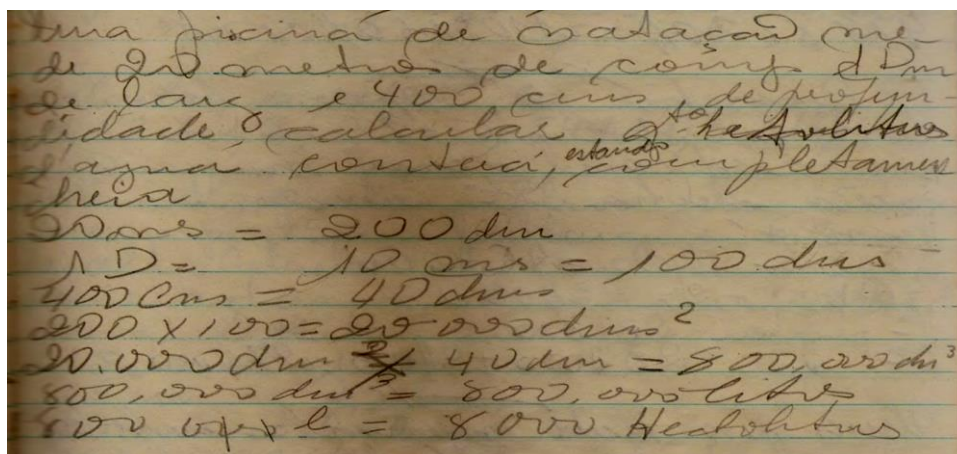 Uma piscina de natação me-
de 20 metros de comp. 1 Dm
de larg e 400 cms de profun-
didade calcular qtos hectolitros
d'agua conterá, estando completamen
cheia
20 ms = 200 dm
1 D = 10 ms = 100 dms
400 Cms = 40 dms
200 x 100 = 20 000 dms²
20.000 dm² x 40 dm = 800,000 dm³
800,000 dm³ = 800,000 litros
800 000 l = 8000 Hectolitros